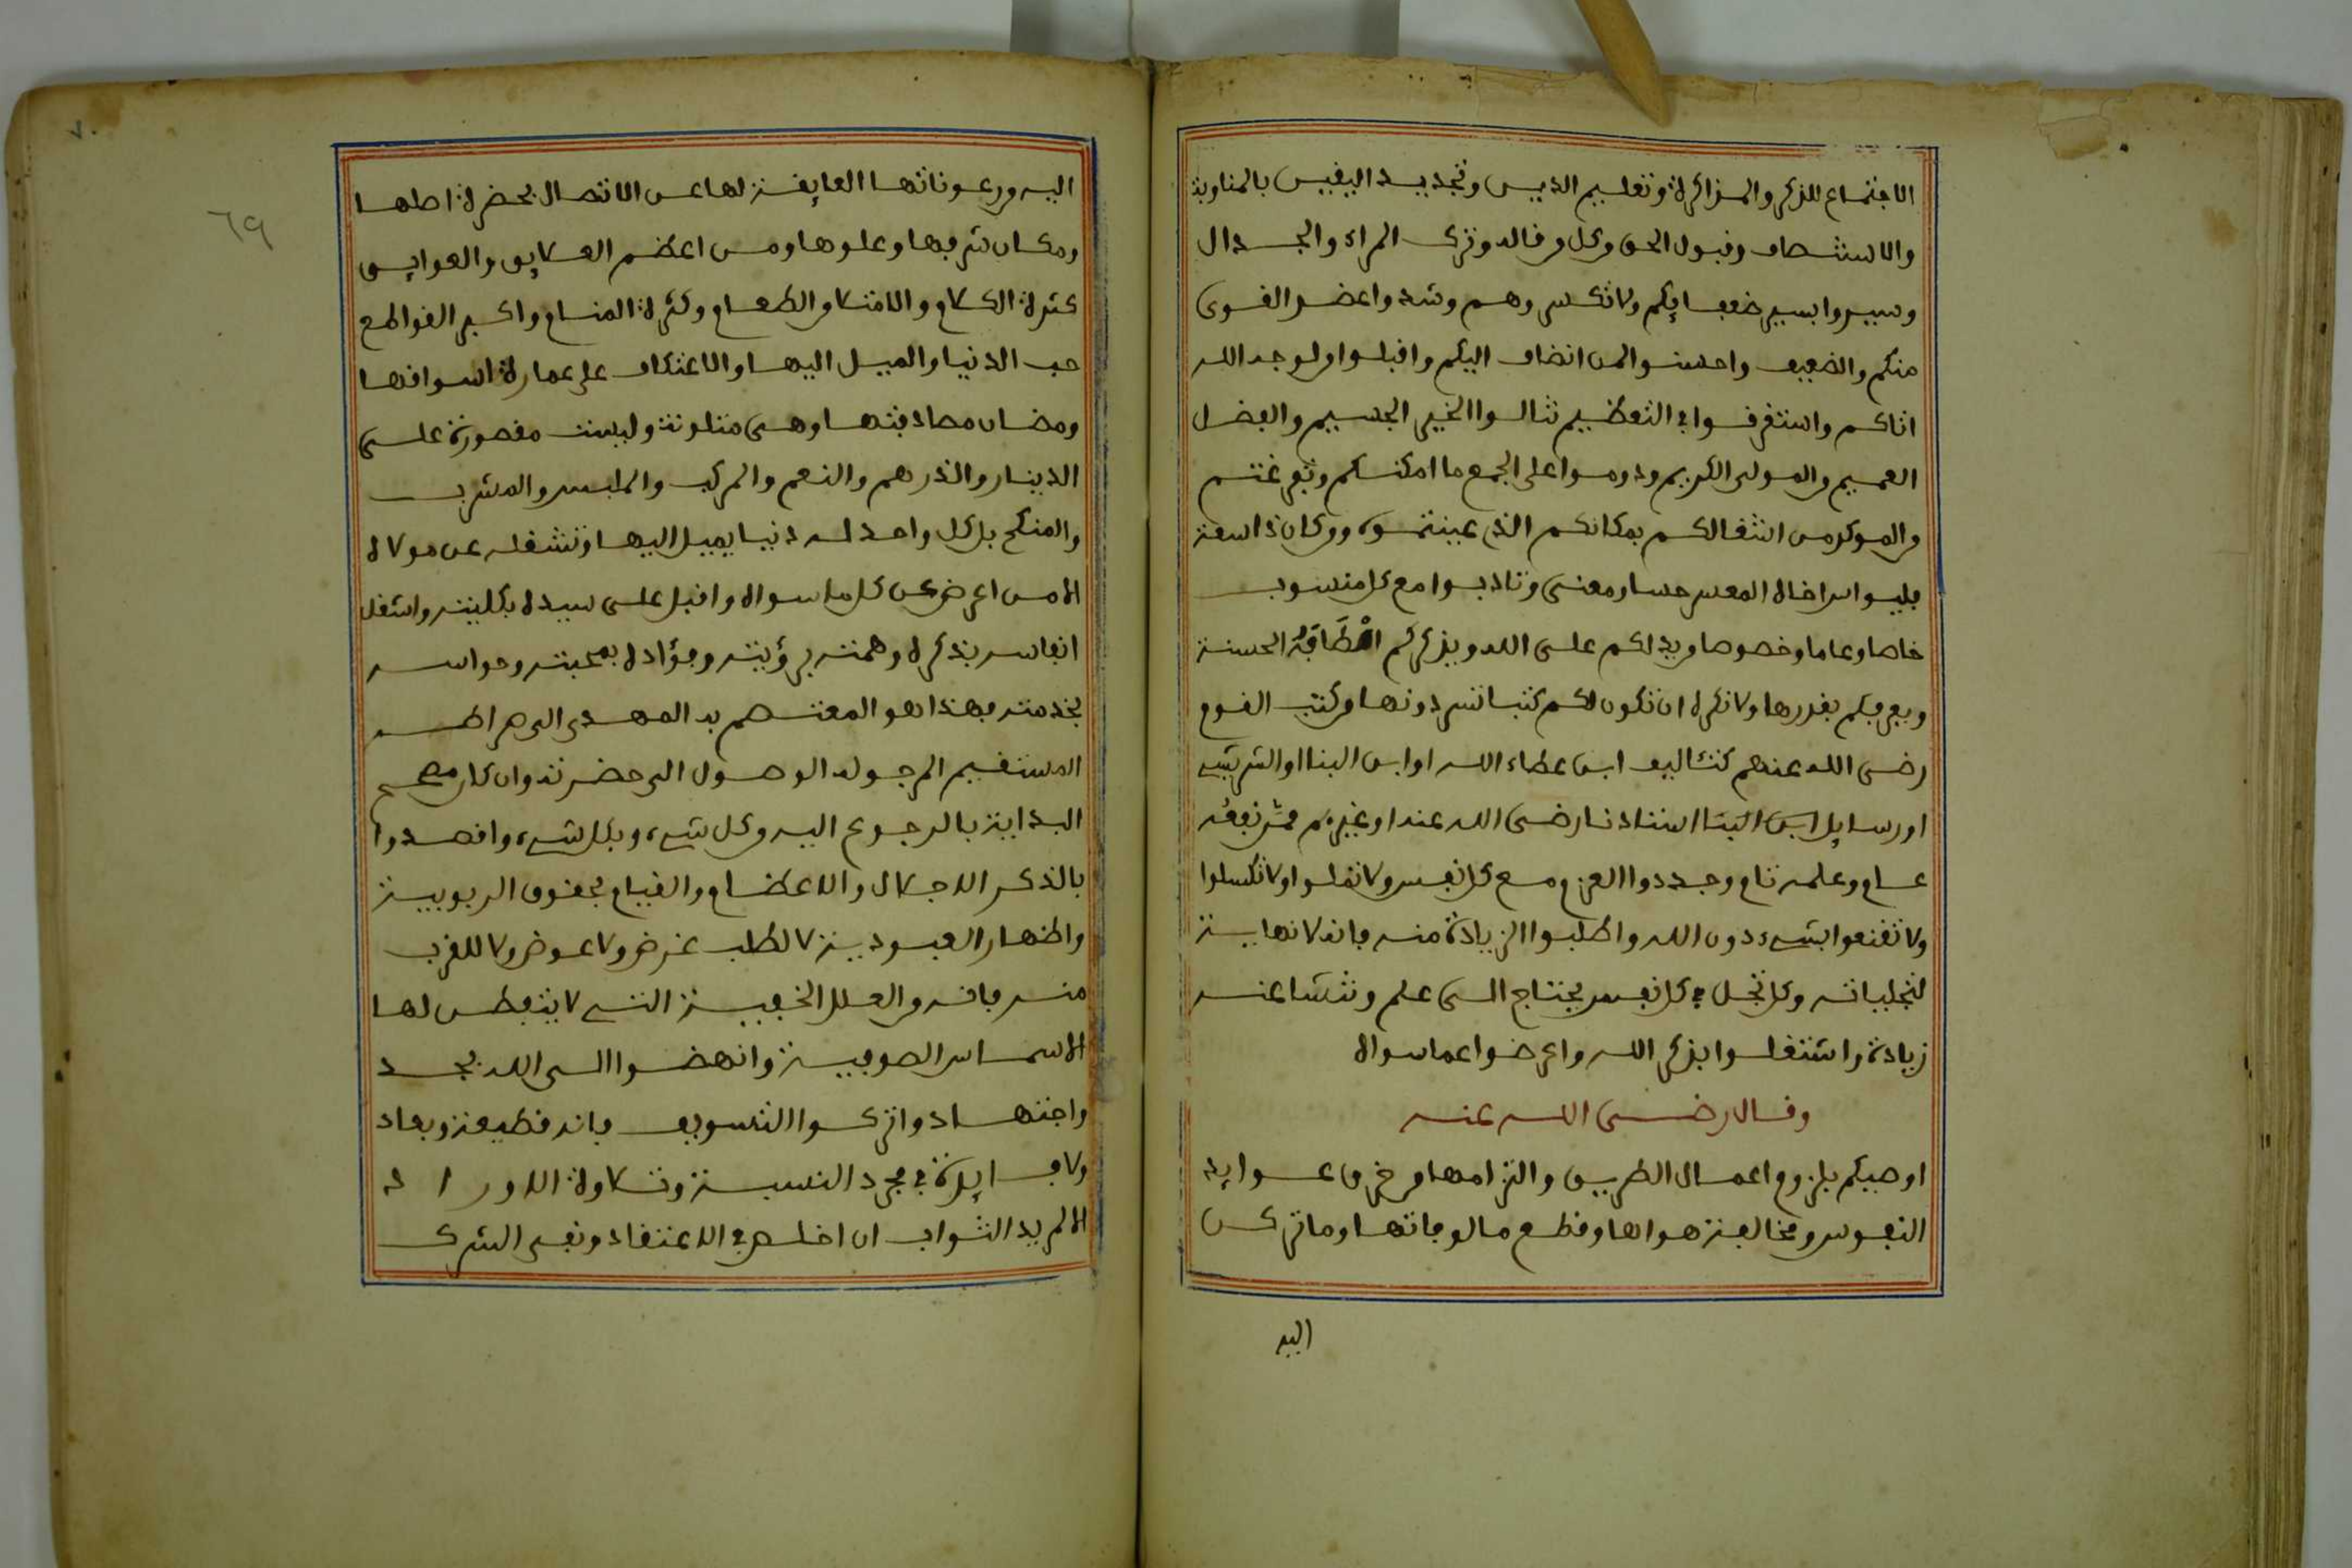 الاجتماع للذكر والمذاكرة وتعليم الدين وتجديد اليقين بالمناوبة
والانتصاف وقبول الحق من كل من قاله وترك المراء والجدال
وسيروا بسير ضعفايكم ولا تكسر وهم وشد واعضد القوى
منكم والضعيف واحسنوا لمن انضاف اليكم واقبلوا من لوجه الله
اتاكم واستغرقوا في التعظيم تنالوا الخير الجسيم والفضل
العميم من المولى الكريم ودوموا على الجمع ما امكنكم وتفرغتم
من الموكد من اشغالكم بمكانكم الذي عينتموه ومن كان ذا سعة
فليواس اخاه المعسر حسا ومعنى وتادبوا مع كل منسوب
خاصا وعاما وخصوصا من يدلكم على الله ويذكركم الحسنة
ويعرفكم بقدرها ولا نكره ان تكون لكم كتبا تسردونها من كتب القوم
رضي الله عنهم كتئاليف ابن عطاء الله او ابن البنا او الشريشي
او رسايل ابن البنا استاذنا رضي الله عنه او غيرهم ممن نفعه
عام وعلمه تام وجددوا العزم مع كل نفس ولا تملوا ولا تكسلوا
ولا تقنعوا بشيء دون الله واطلبوا الزيادة منه فانه لا نهاية
لتجلياته وكل تجل في كل نفس يحتاج الى علم وتنشا عنه
زيادة واشتغلوا بذكر الله واعرضوا عما سواه
وقال رضي الله عنه
اوصيكم بلزوم اعمال الطريق والتزامها من خرق عوايد
النفوس ومخالفة هواها وقطع مالوفاتها وما تركن
اليه
٦٩
٧٠
اليه من رعوناتها العايقة لها عن الاتصال بحضرة اصلها
ومكان شرفها وعلوها ومن اعظم العلايق والعوايق
كثرة الكلام والامتلا من الطعام وكثرة المنام واكبر القواطع
حب الدنيا والميل اليها والاعتكاف على عمارة اسواقها
ومضان مصادفتها وهي متلونة وليست مقصورة على
الدينار والدرهم والنعم والمركب والملبس والمشرب
والمنكح بل كل واحد له دنيا يميل اليها وتشغله عن مولاه
الا من اعرض عن كل ما سواه واقبل على سيده بكليته واشغل
انفاسه بذكره وهمته برؤيته وفؤاده بمحبته وحواسه
بخدمته فهذا هو المعتصم به المهدى الى صراطه
المستقيم المرجو له الوصول الى حضرته وان كان صحيح
البداية بالرجوع اليه من كل شيء وبكل شيء واقصدوا
بالذكر الاجلال والاعظام والقيام بحقوق الربوبية
واظهار العبودية لا لطلب غرض ولا عوض ولا للقرب
منه فانه من العلل الخفية التي لا يتفطن لها
الا سماسر الصوفية وانهضوا الى الله بجد
واجتهاد واتركوا التسويف فانه قطيعة وبعاد
ولا فايدة في مجرد النسبة وتلاوة الاوراد
الا لمريد الثواب ان اخلص في الاعتقاد ونفى الشرك